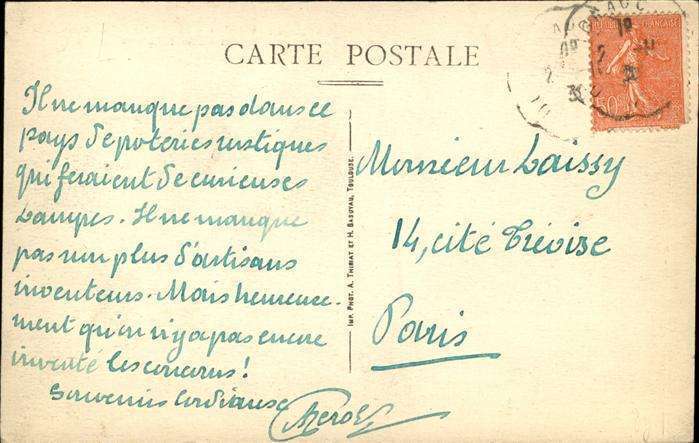 CARTE POSTALE
Il ne manque pas dans ce
pays de poteries rustiques
qui feraient de curieuses
Lampes. Il ne manque
pas non plus d'artisans
inventeurs. Mais heureuse-
ment qu'on n'y a pas encore
inventé les concours!
Souvenirs cordiaux
IMP. PHOT. A. THIRIAT ET H. BASUYAU, TOULOUSE.
Monsieur Laissy
14, cité Trévise
Paris
50